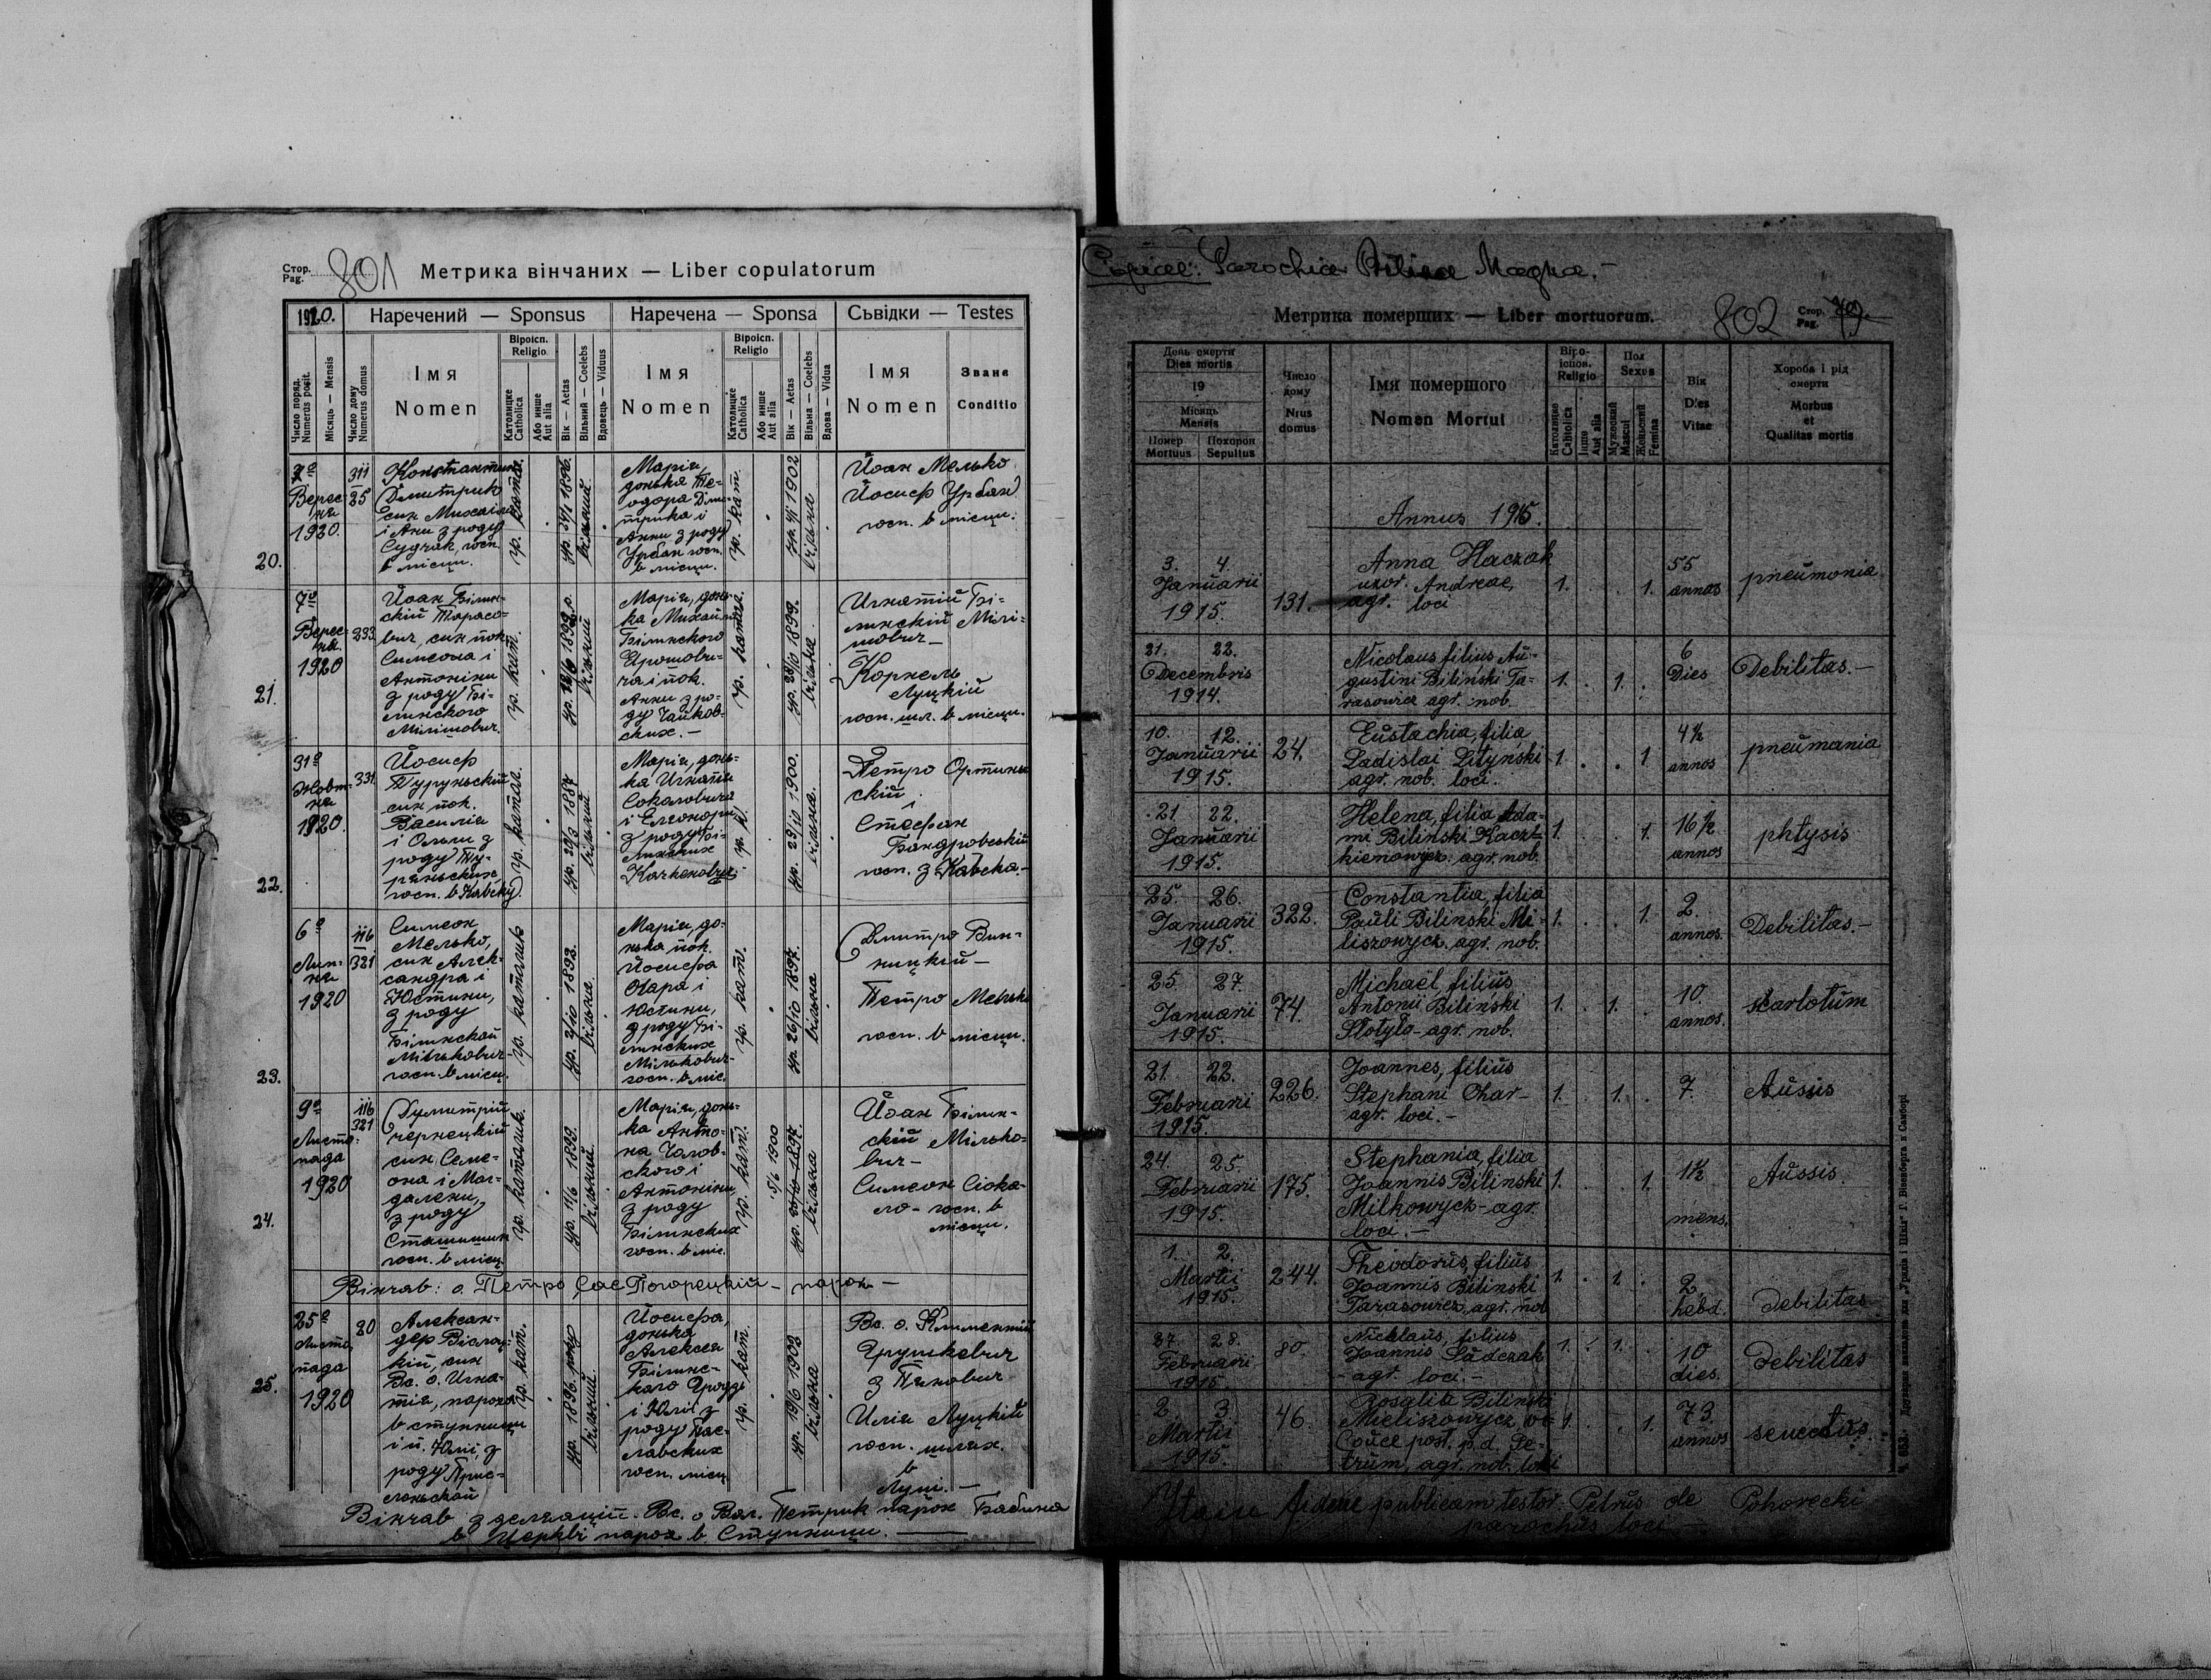 Стор.
Pag.
801
Метрика вінчаних — Liber copulatorum
1920.
Наречений — Sponsus
Наречена — Sponsa
Сьвідки — Testes
Число поряд.
Numerus posit.
Місяць — Mensis
Число дому
Numerus domus
Імя
Nomen
Віроісп.
Religio
Католицке
Catholica
Або инше
Aut alia
Вік — Aetas
Вільний — Coelebs
Вдовець — Viduus
Імя
Nomen
Віроісп.
Religio
Католицке
Catholica
Або инше
Aut alia
Вік — Aetas
Вільна — Coelebs
Вдова — Vidua
Імя
Nomen
Званє
Conditio
20.
Верес-
ня
1920.
311
25
Константин
Дмитрик
син Михаила
і Анни з роду
Судчак, госп.
в місци.
гр. катол.
вільний
Марія,
донька Те-
одора Дми-
трика і
Анни з роду
Урбан госп.
в місци.
гр. кат.
ур. 4/1 1902
вільна
Йоан Мелько
Йосиф Урбан
госп. в місци.
21.
7го
Верес-
ня.
1920
233.
Йоан Білин-
ский Тарасо-
вич, син пок.
Симеона і
Антоніни
з роду Бі-
линского
Мілішович.
гр. кат.
вільний
Марія, донь-
ка Михайла
Білинского
Ярошови-
ча і пок.
Анни з ро-
ду Чайков-
ских.—
гр. катол.
ур. 28/10 1899.
вільна
Игнатій Бі-
линский Мілі-
шович—
Корнель
Луцкій
госп. шл. в місци.
22.
31го
Жовт-
ня
1920.
331.
Йосиф
Турунський
син пок.
Василія
і Ольги з
роду Ту-
рянських
госп. в Кавску
гр. катол.
ур. 29/3 1887
вільний
Марія, донь-
ка Игнатія
Соколовича
і Елеонори
з роду Бі-
линских
гр. к.
ур. 23/10 1900.
вільна.
Петро Ортинь-
ский
і
Стефан
Бандровський
госп. з Кавска.—
23.
6го
Лип-
ня
1920
116
321
Симеон
Мелько,
син Алек-
сандра і
Юстини,
з роду
Білинской
Мількович-
госп. в місц.
гр. католик
ур. 2/10 1893.
вільна
Марія, до-
нька пок.
Йосифа
Охара і
Юстини,
з роду Бі-
линских
Мількович-
госп. в міс.
гр. кат.
ур. 26/10 1897.
вільна
Дмитро Вин-
ницкій—
Петро Мелько
госп. в місци.
24.
9го
Листо-
пада
1920
116
321
Дмитрій
чернецкій
син Семе-
она і Маг-
далени,
з роду
Сташишин
госп. в місц.
гр. католик.
ур. 11/6 1899.
вільний
Марія, донь-
ка Анто-
на Чолов-
ского і
Антоніни,
з роду
Білинских
госп. в міс.
гр. кат.
5/6 1900
вільна
Йоан Білин-
ский Мілько-
вич—
Симеон Сіока-
ло- госп. в
місци.
Вінчав: о. Петро Сас Погорецкій — парох —
25.
25го
Листо-
пада
1920
80
Алексан-
дер Вісло-
кій, син
Вс. о. Игна-
тія, пароха
в ступници
і п. Юлії, з
роду Прис-
лоньской
гр. кат.
ур. 1896. року
вільний
Йосифа,
донька
Алексея
Білинс-
кого Грузд
і Юлії з
роду Пос-
лавских
госп. місц.
гр. кат.
ур. 19/6 1903
вільна
Вс. о. Климентій
Грушкевич
з Пянович
Илія Луцкій
госп. шлях.
в
Луці.—
Вінчав з делєгації Вс. о Вол. Петрик парох Бабина
в Церкві пароx. в Ступници. —
Copiae: Parochia Bilina Magna.—
Метрика померших — Liber mortuorum.
802
Стор.
Pag.
79.
День смерти
Dies mortis
19
Місяць
Mensis
Помер
Mortuus
Похорон
Sepultus
Число
дому
Nrus
domus
Імя помершого
Nomen Mortui
Віро-
іспов.
Religio
Католицке
Catholica
Інше
Aut alia
Пол
Sexus
Мужеский
Mascul
Женьский
Femina
Вік
Dies
Vitae
Хороба і рід
смерти
Morbus
et
Qualitas mortis
Annus 1915.
3. 4.
Januarii
1915.
131.
Anna Haczak
uxor. Andreae,
agr. loci
1. 1.
55
annos
pneumonia
21. 22.
Decembris
1914.
Nicolaus filius Au-
gustini Biliński Ta-
rasowicz agr. nob.
1. 1.
6
Dies
Debilitas.—
10. 12.
Januarii
1915.
24.
Eustachia, filia
Ladislai Lityński
agr. nob. loci.
1. 1
4½
annos
pneumania
21. 22.
Januarii
1915.
Helena, filia Ada-
mi Bilinski Kaczt-
kienowycz. agr. nob.
1. 1.
16½
annos
phtysis
25. 26.
Januarii
1915.
322.
Constantia, filia
Pauli Bilinski Mi-
liszowycz. agr. nob.
1. 1.
2.
annos.
Debilitas.—
25. 27.
Januarii
1915.
74.
Michaël, filius
Antonii Bilinski
Stotyło- agr. nob.
1. 1.
10.
annos.
skarlotum
21. 22.
Februarii
1915.
226.
Joannes, filius
Stephani Ohar-
agr. loci.-
1. 1.
7.
Aussis
24. 25.
Februarii
1915.
175.
Stephania, filia
Joannis Bilinski
Milkowycz- agr.
loci.-
1. 1.
1½
mens.
Aussis.
1. 2.
Martii
1915.
244.
Theodorus, filius
Joannis Bilinski
Tarasowicz, agr. nob
1. 1.
2.
hebd.
Debilitas
27. 28.
Februarii
1915.
80.
Nicklaus, filius
Joannis Sadczak
- agr. loci.-
1. 1.
10
dies.
Debilitas
2. 3
Martii
1915.
46.
Rosalia Bilinski
Mieliszowycz,
post. p. d. Pe-
trum, agr. nob. loci
1. 1.
73.
annos
senectus.
fidem publicam testor. Petrus de Pohorecki
parochus loci—